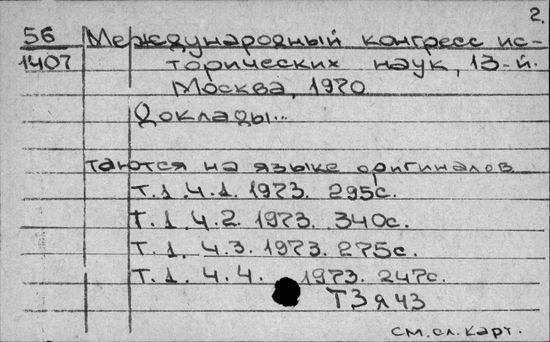 2.
56 Международный конгресс ис-
1407 торических наук, 13-й.
Москва, 1970
Доклады...
таются на языке оригиналов
т.1 ч.1. 1973. 295с.
т.1 ч.2. 1973. 340с.
т.1. ч.3. 1973. 275с.
т.1. ч.4. 1973. 247с.
ТЗя43
см.сл.карт.